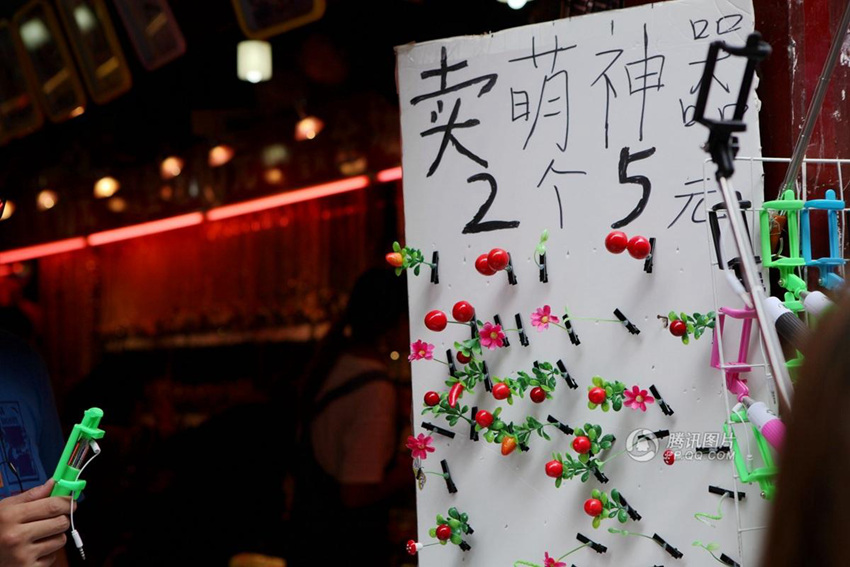 卖萌神器
2个5元
腾讯图片
PP.QQ.COM